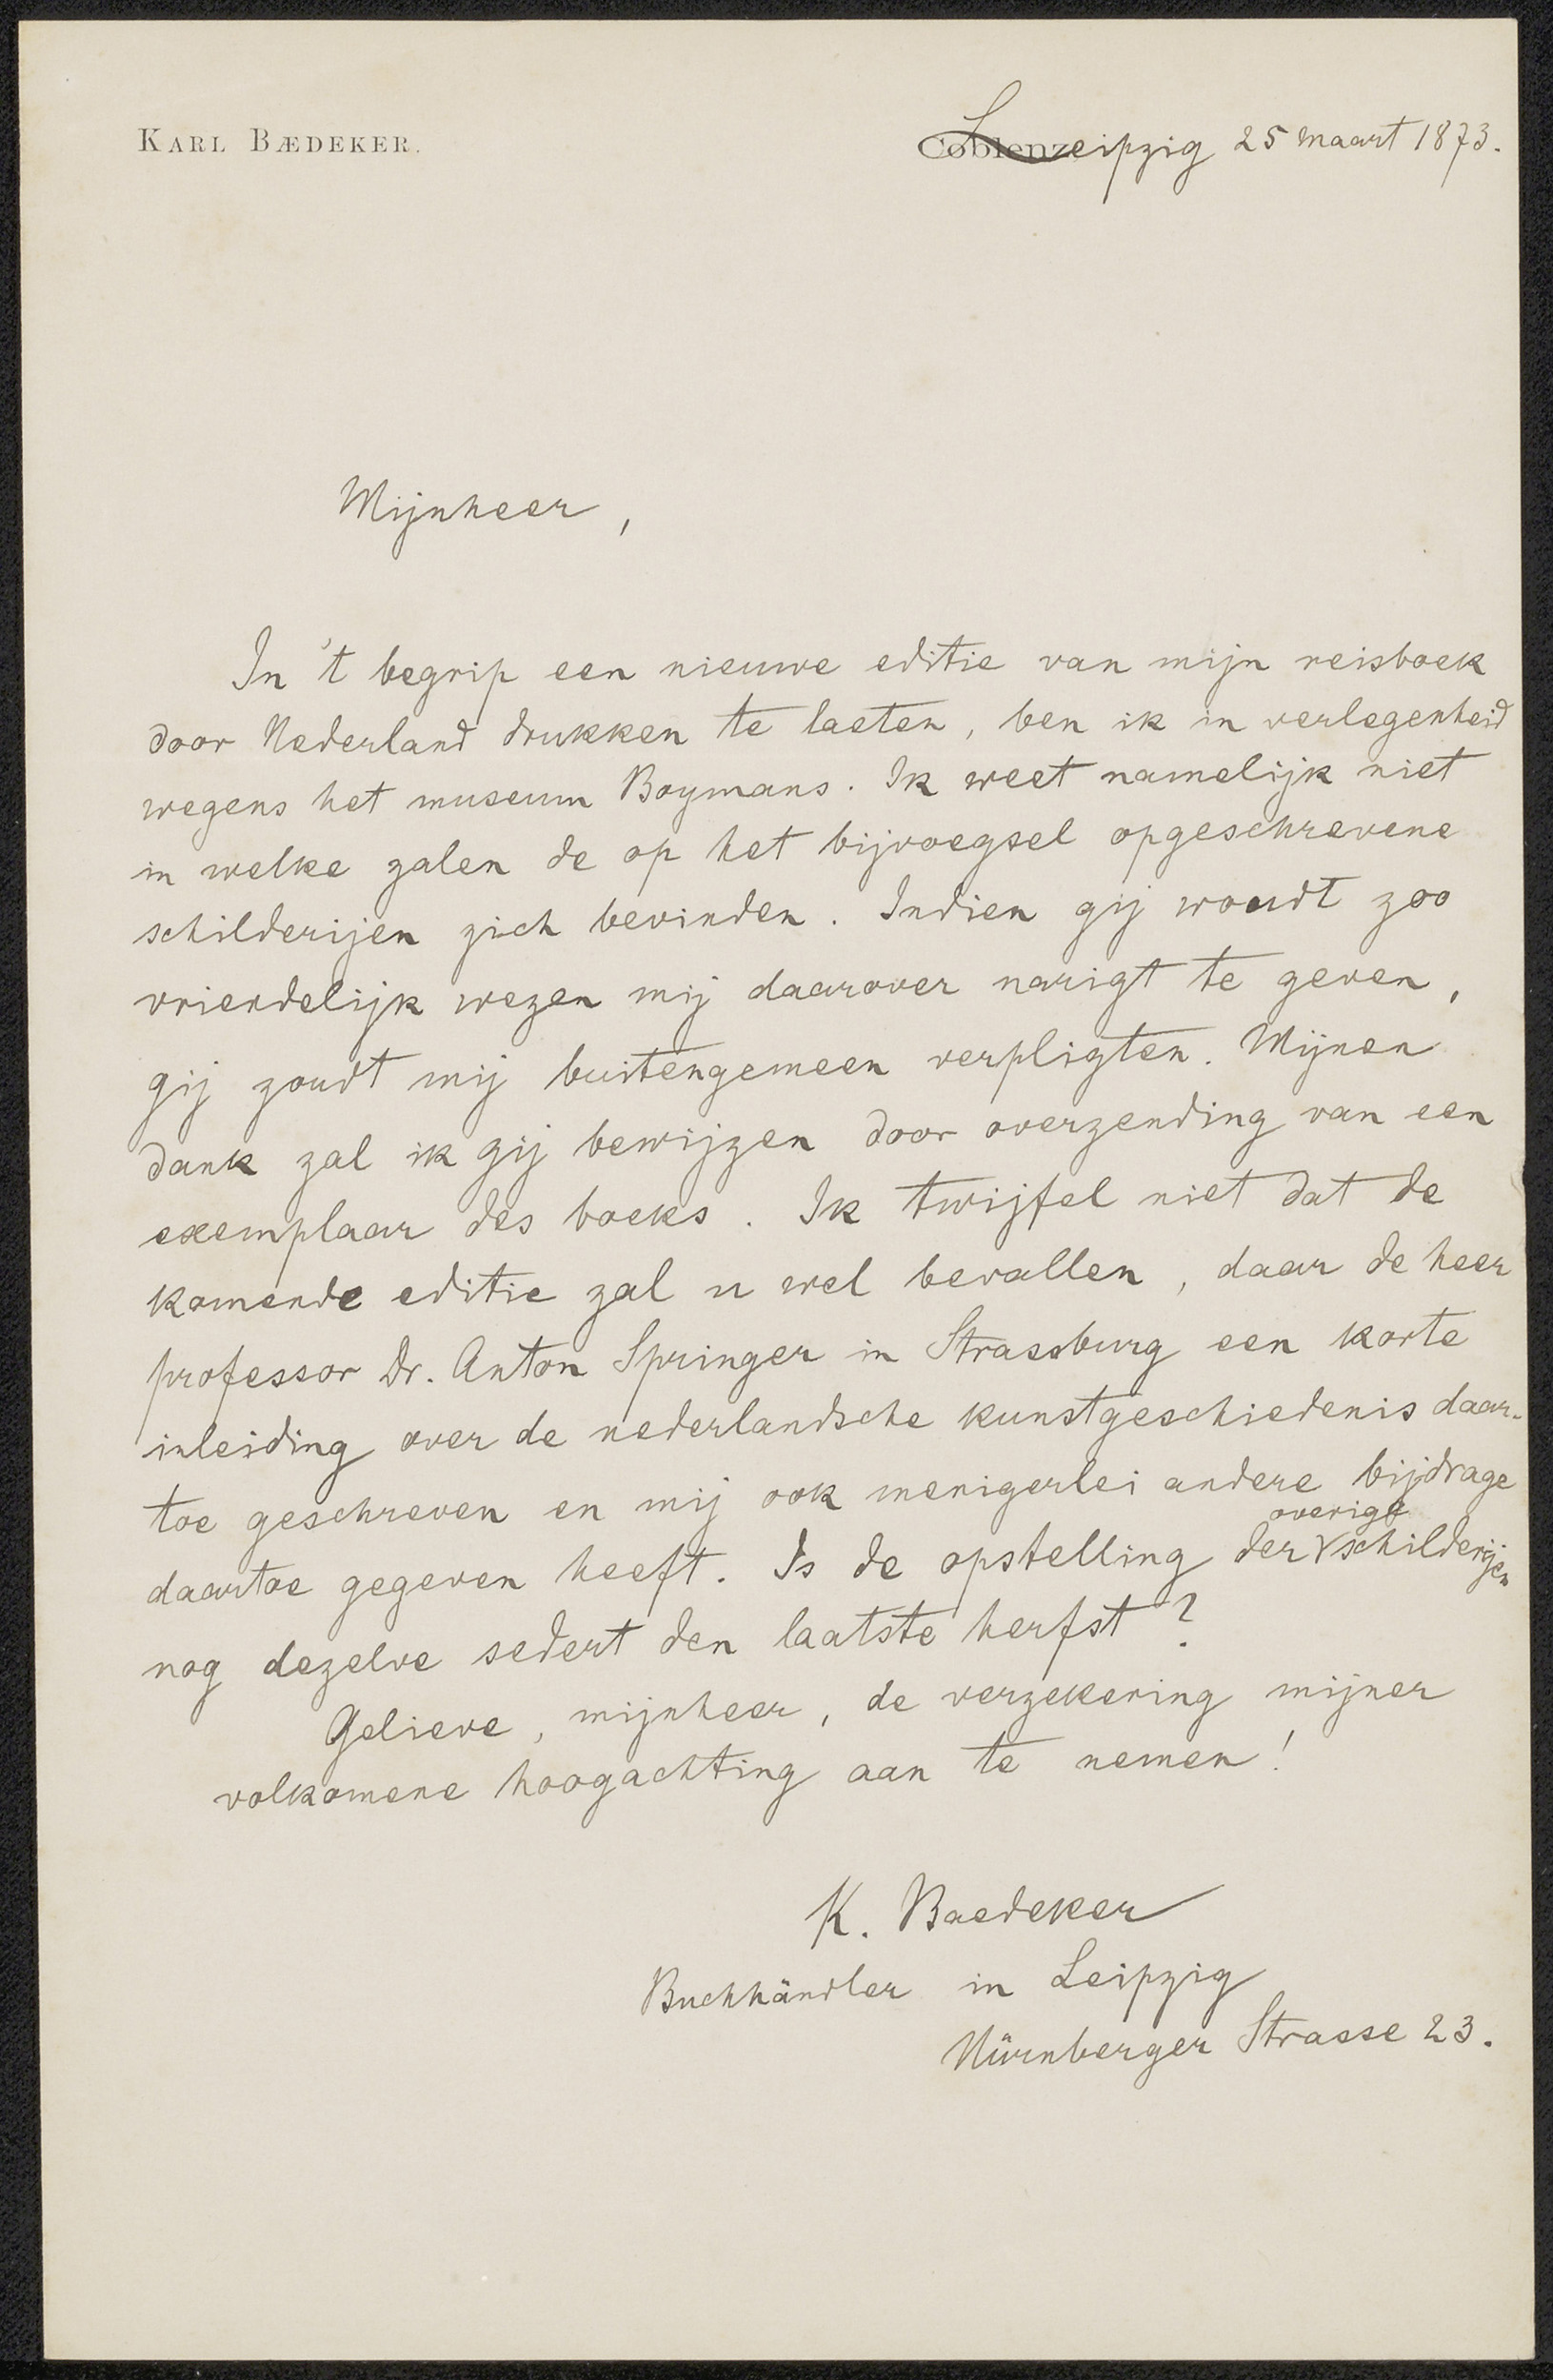 KARL BÆDEKER.
Coblenz Leipzig 25 maart 1873.
Mijnheer,
In 't begrip een nieuwe editie van mijn reisboek
door Nederland drukken te laeten, ben ik in verlegenheid
wegens het museum Boymans. Ik weet namelijk niet
in welke zalen de op het bijvoegsel opgeschrevene
schilderijen zich bevinden. Indien gij woudt zoo
vriendelijk wezen mij daarover narigt te geven,
gij zoudt mij buitengemeen verpligten. Mijnen
dank zal ik gij bewijzen door overzending van een
exemplaar des boeks. Ik twijfel niet dat de
komende editie zal u wel bevallen, daar de heer
professor Dr. Anton Springer in Strassburg een korte
inleiding over de nederlandsche kunstgeschiedenis daar-
toe geschreven en mij ook menigerlei andere bijdrage
daartoe gegeven heeft. Is de opstelling der overige schilderijen
nog dezelve sedert den laatste herfst?
Gelieve, mijnheer, de verzekering mijner
volkomene hoogachting aan te nemen!
K. Baedeker
Buchhändler in Leipzig
Nürnberger Strasse 23.